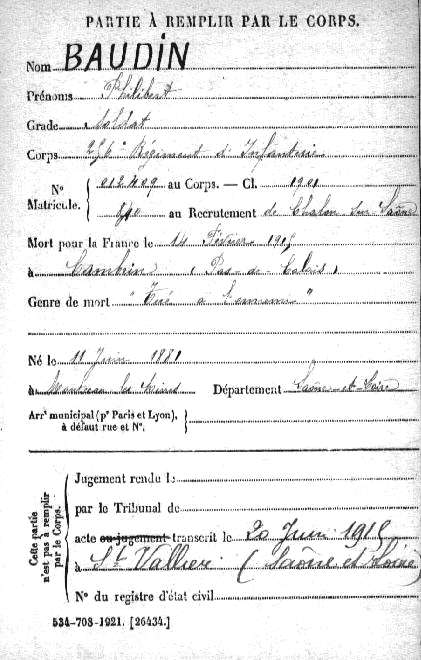 PARTIE À REMPLIR PAR LE CORPS.
Nom BAUDIN
Prénoms Philibert
Grade Soldat
Corps 256e Régiment d'Infanterie
No Matricule. 012409 au Corps. — Cl. 1901
au Recrutement de Chalon sur Saône
Mort pour la France le 14 Février 1915
à Cambrin (Pas-de-Calais)
Genre de mort "Tué à l'ennemi"
Né le 11 Juin 1881
à Montceau les Mines Département Saône-et-Loire
Arrt municipal (pr Paris et Lyon),
à défaut rue et No.
Cette partie
n'est pas à remplir
par le Corps.
Jugement rendu le
par le Tribunal de
acte ou jugement transcrit le 20 Juin 1915
à St Vallier (Saône et Loire)
No du registre d'état civil
534-708-1921. [26434.]